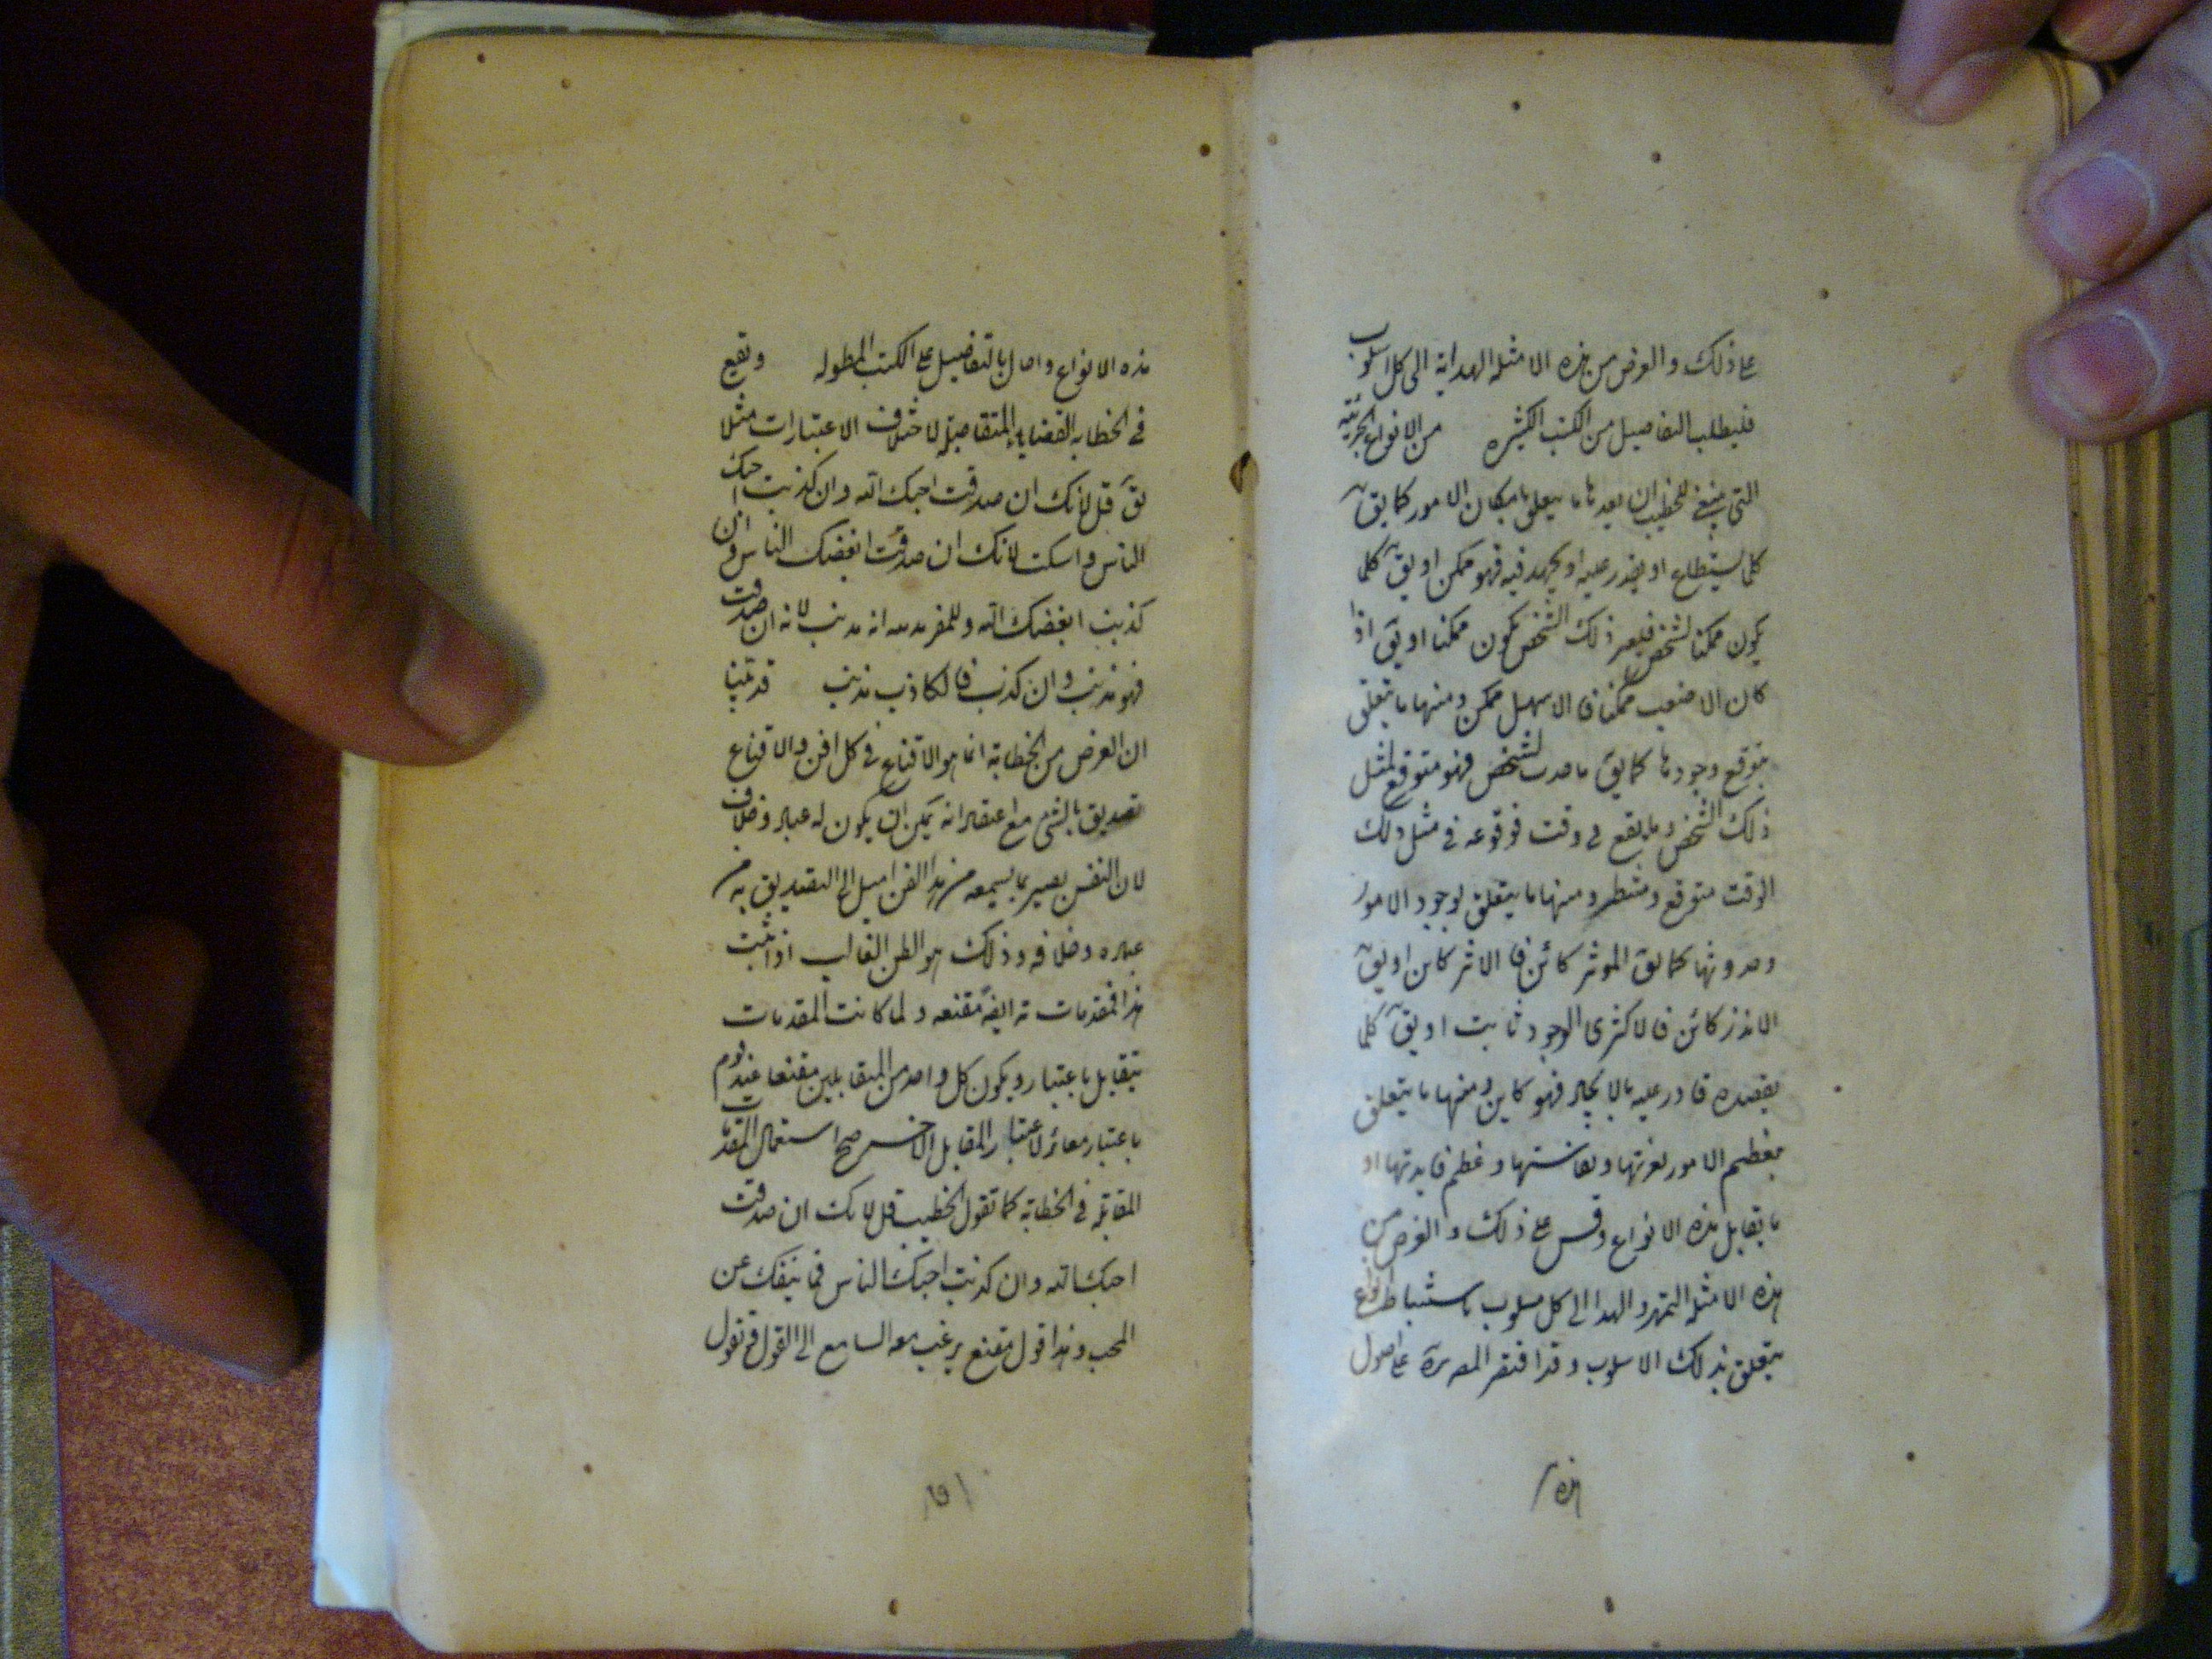 على ذلك والغرض من هذه الامثلة الهداية الى كل اسلوب
فليطلب التفاصيل من الكتب الكثيره من الانواع الجزئية
التى ينبغى للخطيب ان يعدها ما يتعلق بامكان الامور كما يقَ
كلما يستطاع او يقدر عليه او يجهد فيه فهو ممكن او يقَ كلما
يكون ممكنا لشخص فلغير ذلك الشخص يكون ممكنا او يقَ اذا
كان الاصعب ممكنا فالاسهل ممكن ومنها ما يتعلق
بتوقع وجودها كما يقَ ما حدث لشخص فهو متوقع لمثل
ذلك الشخص وما يقع فى وقت فوقوعه فى مثل ذلك
الوقت متوقع ومنتظر ومنها ما يتعلق بوجود الامور
وحدوثها كما يقَ الموثر كائن فالاثر كاين او يقَ
الاندر كائن فالاكثرى الوجود ثابت او يقَ كلما
يقصده قادر عليه فهو كاين ومنها ما يتعلق
بعظم الامور لعزتها ونفاستها وعظم فايدتها او
ما يقابل هذه الانواع وقس على ذلك والغرض من
هذه الامثلة الى كل اسلوب باستنباط انواع
يتعلق بذلك الاسلوب وقد اقتصر المص على اصول
هذه
هذه الانواع واحال بالتفاصيل على الكتب المطوله وتقع
فى الخطابه القضايا المتقابلة لاختلاف الاعتبارات مثلا
يقَ قل لانك ان صدقت احبك الله وان كذبت احبك
الناس واسكت لانك ان صدقت ابغضك الناس وان
كذبت ابغضك الله انه مذنب لانه ان صدقت
فهو مذنب وان كذب فالكاذب مذنب قد
ان الغرض من الخطابة انما هو الاقناع فى كل فن والاقناع
تصديق بالشئ مع اعتقاد انه يمكن ان يكون له عناد وخلاف
لان النفس يصير بما يسمعه من هذا الفن اميل الى التصديق به من
عناده وخلافه وذلك هو الظن الغالب اذا ثبت
هذا فمقدمات مقنعه ولما كانت المقدمات
يتقابل باعتبار ويكون كل واحد من المتقابلين مقنعا عند قوم
باعتبار مغائر لاعتبار المقابل الاخر صح استعمال المقدمات
المتقابلة فى الخطابة كما تقول الخطيب قل لانك ان صدقت
احبك الله وان كذبت احبك الناس فما ينفك عن
المحب وهذا قول مقنع يرغب معه السامع الى القول وتقول